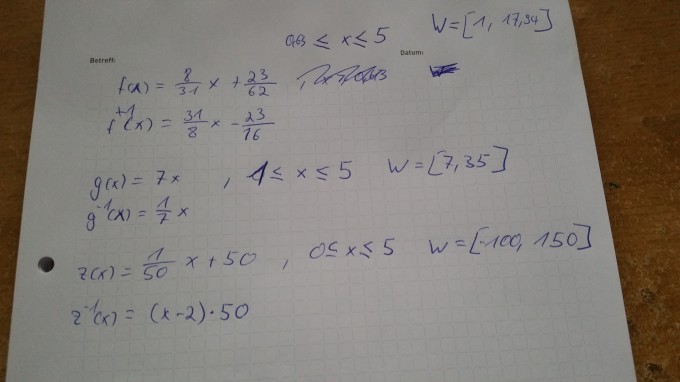 0,63 ≤ x ≤ 5 W = [1, 17,94]
Betreff: Datum:
f(x) = 8/31 x + 23/62
f⁻¹(x) = 31/8 x - 23/16
g(x) = 7x , 1 ≤ x ≤ 5 W = [7,35]
g⁻¹(x) = 1/7 x
z(x) = 1/50 x + 50 , 0 ≤ x ≤ 5 W = [-100, 150]
z⁻¹(x) = (x-2)·50